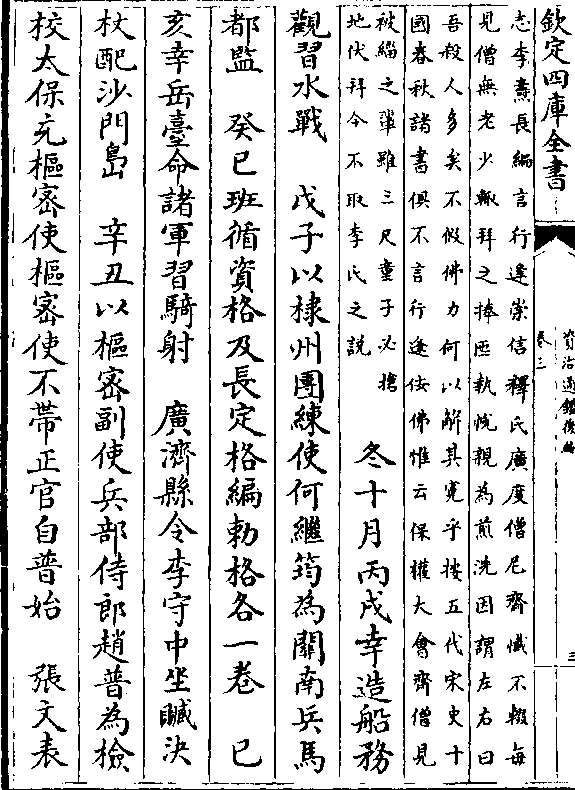 欽定四庫全書
資治通鑑後編
卷三
三
志李燾長編言行逢崇信釋氏廣度僧尼齋懺不輟每
見僧無老少輒拜之捧匜執帨親為煎洗因謂左右曰
吾殺人多矣不假佛力何以解其寃乎按五代宋史十
國春秋諸書俱不言行逢佞佛惟云保權大會齋僧見
被緇之輩雖三尺童子必搶
地伏拜今不取李氏之説
冬十月丙戌幸造船務
觀習水戰　戊子以棣州團練使何繼筠為關南兵馬
都監　癸巳班循資格及長定格編勅格各一卷　己
亥幸岳臺命諸軍習騎射　廣濟縣令李守中坐贓決
杖配沙門島　辛丑以樞密副使兵部侍郎趙普為檢
校太保充樞密使樞密使不帶正官自普始　張文表